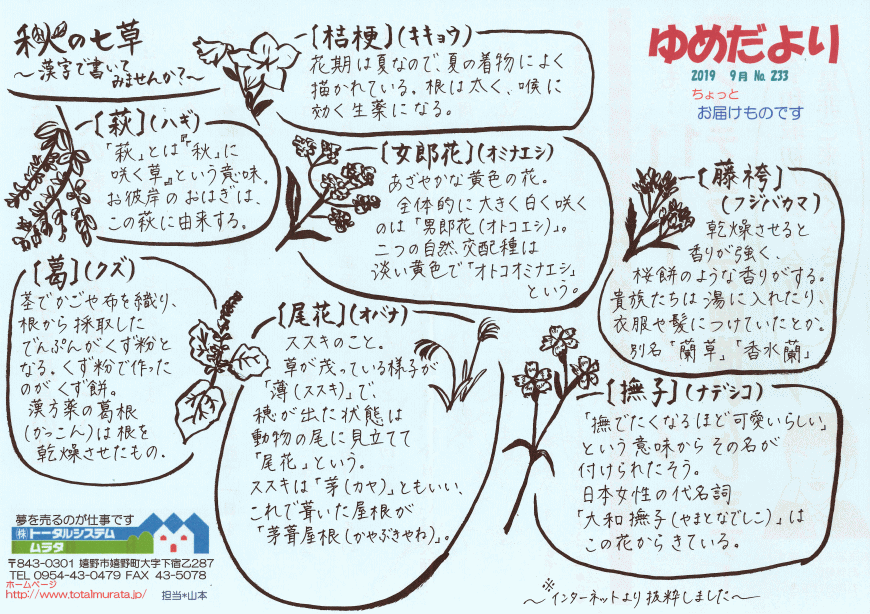 秋の七草
～漢字で書いて
みませんか？～
ゆめだより
2019 9月 No. 233
ちょっと
お届けものです
［桔梗］（キキョウ）
花期は夏なので、夏の着物によく
描かれている。根は太く、喉に
効く生薬になる。
［萩］（ハギ）
「萩」とは『秋』に
咲く草』という意味。
お彼岸のおはぎは、
この萩に由来する。
［女郎花］（オミナエシ）
あざやかな黄色の花。
全体的に大きく白く咲く
のは「男郎花（オトコエシ）」。
二つの自然交配種は
淡い黄色で「オトコオミナエシ」
という。
［藤袴］
（フジバカマ）
乾燥させると
香りが強く、
桜餅のような香りがする。
貴族たちは湯に入れたり、
衣服や髪につけていたとか。
別名「蘭草」「香水蘭」
［葛］（クズ）
茎でかごや布を織り、
根から採取した
でんぷんがくず粉と
なる。くず粉で作った
のがくず餅。
漢方薬の葛根
（かっこん）は根を
乾燥させたもの。
［尾花］（オバナ）
ススキのこと。
草が茂っている様子が
「薄（ススキ）」で、
穂が出た状態は
動物の尾に見立てて
「尾花」という。
ススキは「茅（カヤ）」ともいい、
これで葺いた屋根が
「茅葺屋根（かやぶきやね）」。
［撫子］（ナデシコ）
「撫でたくなるほど可愛いらしい」
という意味からその名が
付けられたそう。
日本女性の代名詞
「大和撫子（やまとなでしこ）」は
この花からきている。
夢を売るのが仕事です
㈱トータルシステム
ムラタ
〒843-0301 嬉野市嬉野町大字下宿乙287
TEL 0954-43-0479 FAX 43-5078
ホームページ
http://www.totalmurata.jp/ 担当*山本
※
～インターネットより抜粋しました～